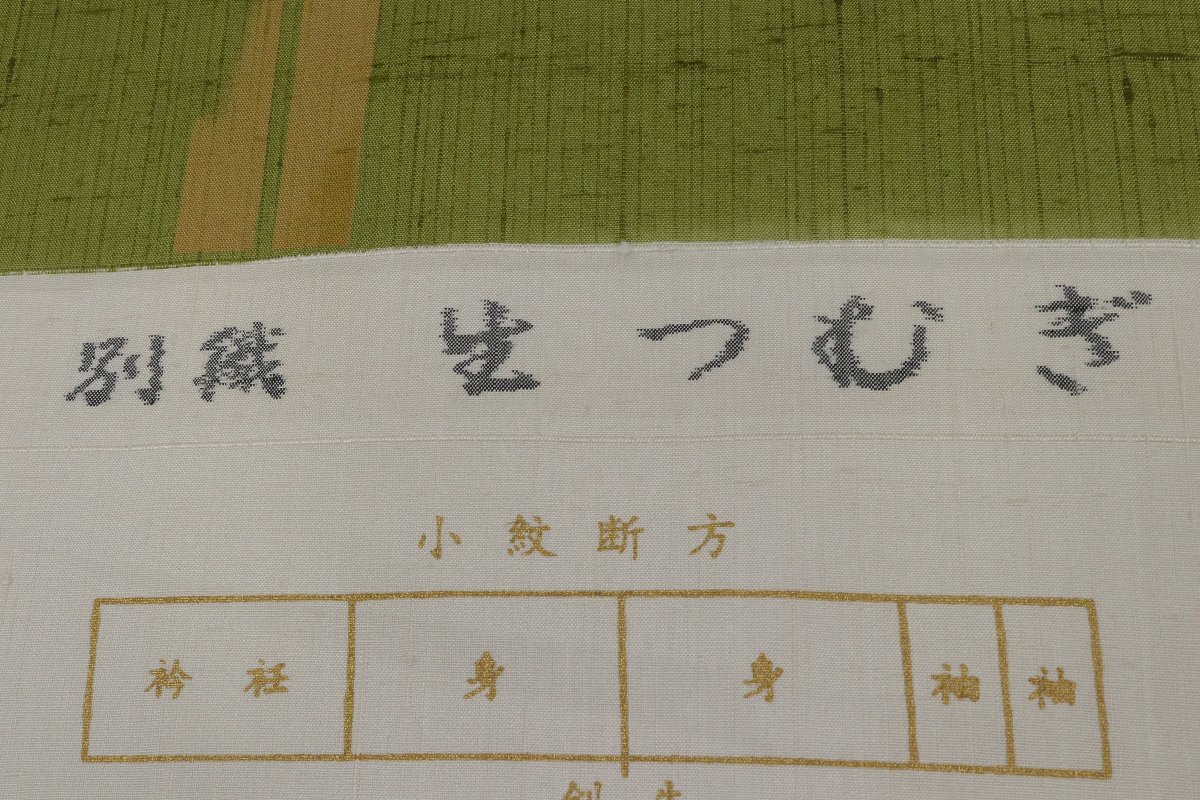 別織 生つむぎ
小紋断方
衿 衽 身 身 袖 袖